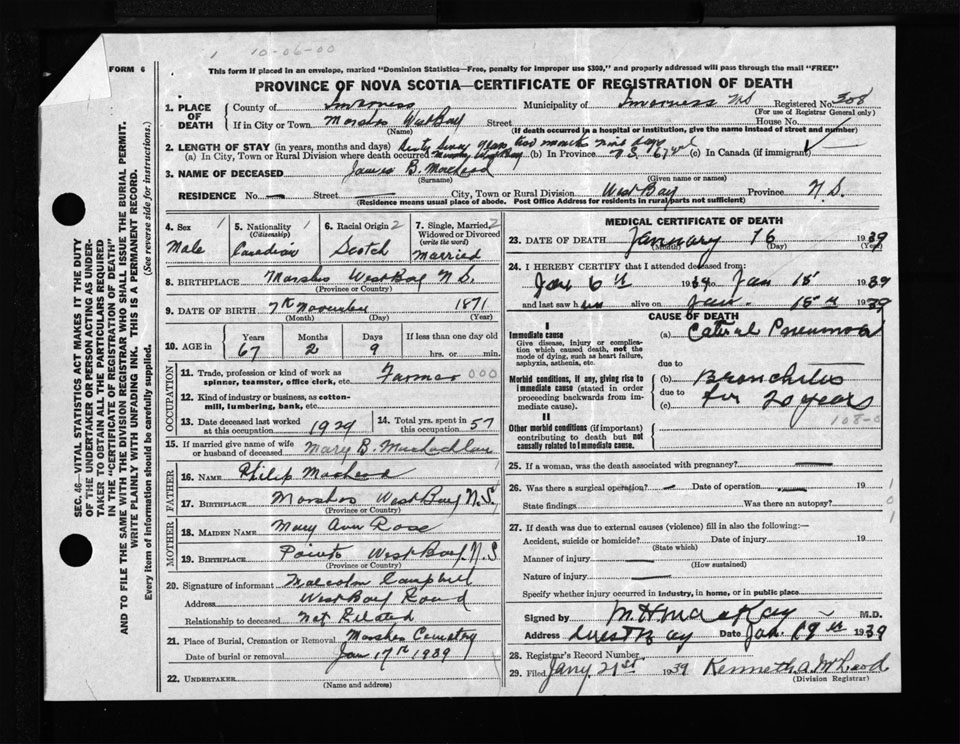 1 10-06-00
FORM 6
This form if placed in an envelope, marked "Dominion Statistics—Free, penalty for improper use $300," and properly addressed will pass through the mail "FREE"
PROVINCE OF NOVA SCOTIA—CERTIFICATE OF REGISTRATION OF DEATH
SEC. 46—VITAL STATISTICS ACT MAKES IT THE DUTY
OF THE UNDERTAKER OR PERSON ACTING AS UNDER-
TAKER TO OBTAIN ALL THE PARTICULARS REQUIRED
IN THE "CERTIFICATE OF REGISTRATION OF DEATH"
AND TO FILE THE SAME WITH THE DIVISION REGISTRAR WHO SHALL ISSUE THE BURIAL PERMIT.
WRITE PLAINLY WITH UNFADING INK. THIS IS A PERMANENT RECORD.
Every item of information should be carefully supplied. (See reverse side for instructions.)
1. PLACE OF DEATH County of Inverness Municipality of Inverness NS Registered No. 308
(For use of Registrar General only)
If in City or Town Marshes West Bay Street House No.
(Name) (If death occurred in a hospital or institution, give the name instead of street and number)
2. LENGTH OF STAY (in years, months and days) sixty seven years two months nine days
(a) In City, Town or Rural Division where death occurred Marshes West Bay (b) In Province N.S. 67 yrs (c) In Canada (if immigrant)
3. NAME OF DECEASED James B. MacLeod
(Surname) (Given name or names)
RESIDENCE No. — Street — City, Town or Rural Division West Bay Province N.S.
(Residence means usual place of abode. Post Office Address for residents in rural parts not sufficient)
4. Sex 1 5. Nationality 1 6. Racial Origin 2 7. Single, Married, 2
(Citizenship) Widowed or Divorced
(write the word)
Male Canadian Scotch Married
8. BIRTHPLACE Marshes West Bay N.S.
(Province or Country)
9. DATE OF BIRTH 7th November 1871
(Month) (Day) (Year)
10. AGE in Years Months Days If less than one day old
67 2 9 hrs. or min.
OCCUPATION
11. Trade, profession or kind of work as
spinner, teamster, office clerk, etc. Farmer 000
12. Kind of industry or business, as cotton-
mill, lumbering, bank, etc.
13. Date deceased last worked 14. Total yrs. spent in
at this occupation 1929 this occupation 57
15. If married give name of wife
or husband of deceased Mary B. MacLachlan
FATHER
16. NAME Philip MacLeod 1
17. BIRTHPLACE Marshes West Bay N.S.
(Province or Country)
MOTHER
18. MAIDEN NAME Mary Ann Rose
19. BIRTHPLACE Points West Bay. N.S
(Province or Country)
20. Signature of informant Malcolm Campbell
Address West Bay Road
Relationship to deceased Not Related
21. Place of Burial, Cremation or Removal Marshes Cemetry
Date of burial or removal Jan 17th 1939
22. UNDERTAKER
(Name and address)
MEDICAL CERTIFICATE OF DEATH
23. DATE OF DEATH January 16 1939
(Month) (Day) (Year)
24. I HEREBY CERTIFY that I attended deceased from:
Jan 6th 1939 to Jan 15 1939
and last saw h alive on Jan. 15th 1939
CAUSE OF DEATH
I
Immediate cause
Give disease, injury or complica-
tion which caused death, not the
mode of dying, such as heart failure,
asphyxia, asthenia, etc.
(a) Pneumonia
due to
Morbid conditions, if any, giving rise to
immediate cause (stated in order
proceeding backwards from im-
mediate cause).
(b) Bronchites
due to
(c) for 20 years
108-0
II
Other morbid conditions (if important)
contributing to death but not
causally related to immediate cause.
25. If a woman, was the death associated with pregnancy? —
26. Was there a surgical operation? — Date of operation — 19
State findings Was there an autopsy?
101
27. If death was due to external causes (violence) fill in also the following:—
Accident, suicide or homicide? Date of injury 19
(State which)
Manner of injury —
(How sustained)
Nature of injury —
Specify whether injury occurred in industry, in home, or in public place
Signed by M H MacKay M.D.
Address West Bay Date Jan 19th 1939
28. Registrar's Record Number
29. Filed Jany 21st 1939 Kenneth A. McLeod
(Division Registrar)